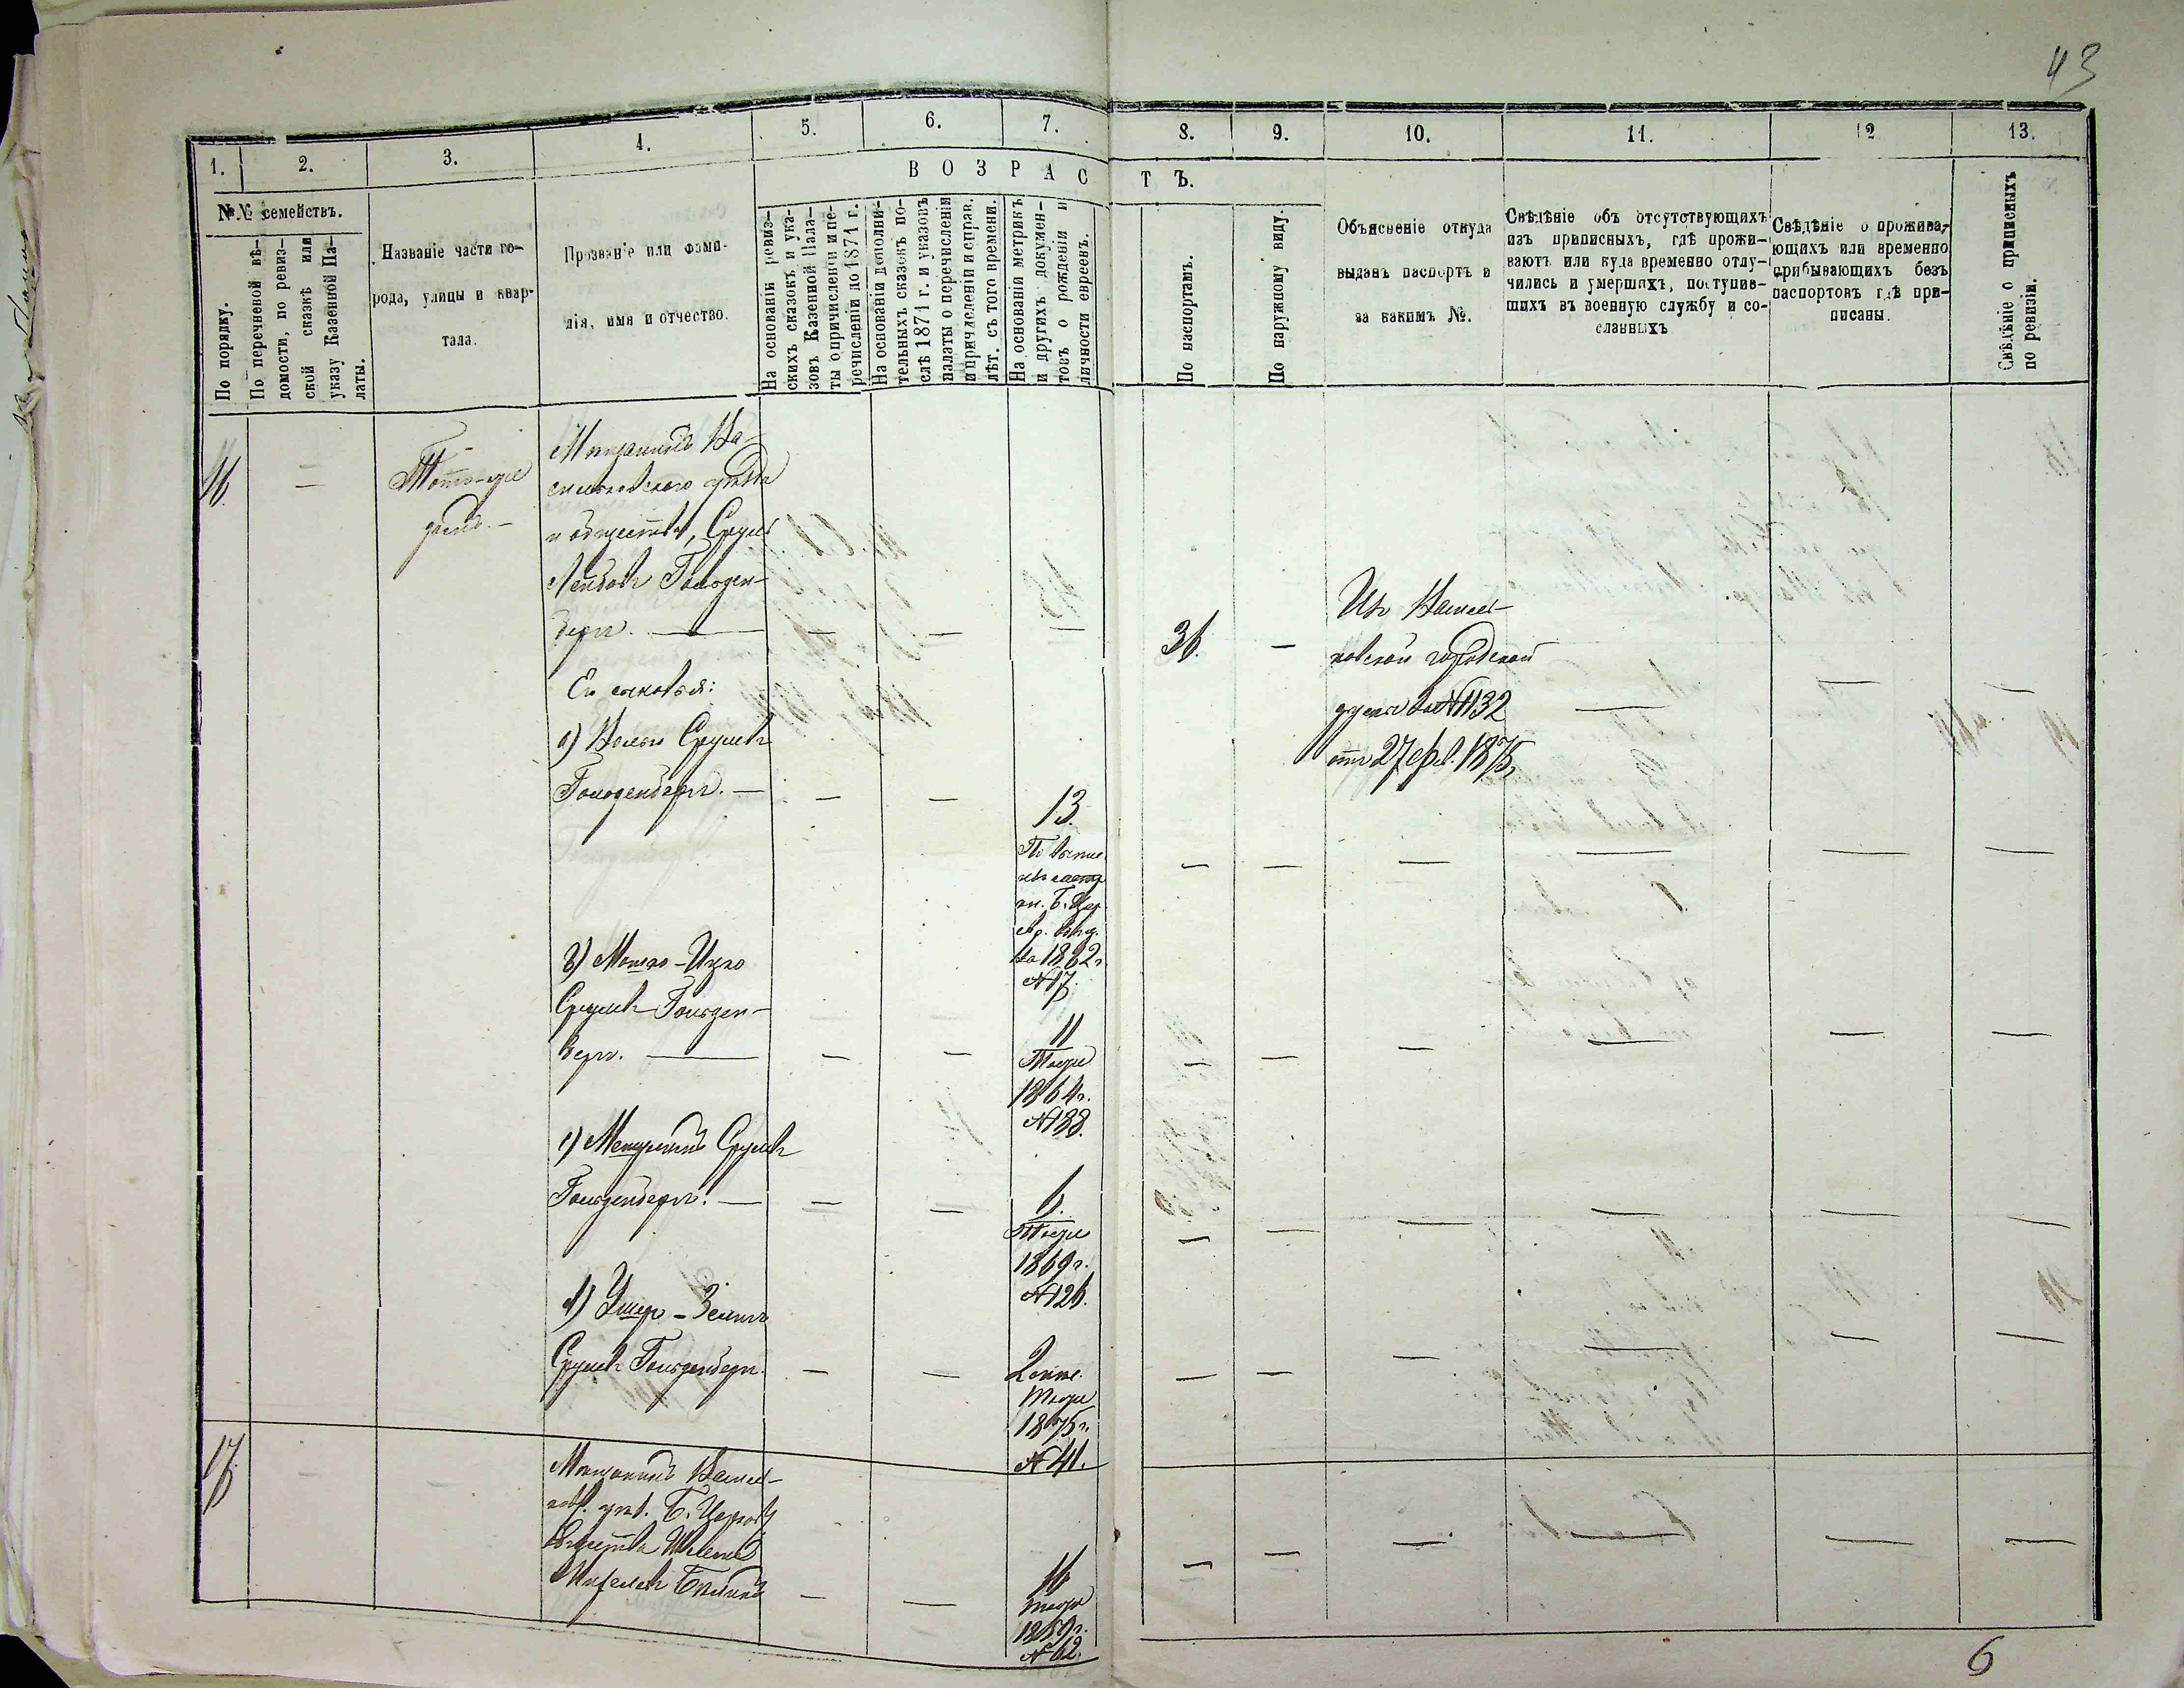 43
1.
2.
3.
4.
5.
6.
7.
8.
9.
10.
11.
12
13.
ВОЗРАСТЪ.
№№ семействъ.
По порядку.
По перечневой вѣ-
домости, по ревиз-
ской сказкѣ или
указу Казенной Па-
латы.
Названіе части го-
рода, улицы и квар-
тала.
Прозваніе или фами-
лія, имя и отчество.
На основаніи ревиз-
скихъ сказокъ и ука-
зовъ Казенной Пала-
ты о причисленіи и пе-
речисленіи до 1871 г.
На основаніи дополни-
тельныхъ сказокъ по-
слѣ 1871 г. и указовъ
палаты о перечисленіи
и причисленіи и справ.
лѣт. съ того времени.
На основаніи метрикъ
и другихъ докумен-
товъ о рожденіи и
личности евреевъ.
По паспортамъ.
По наружному виду.
Объясненіе откуда
выданъ паспортъ и
за какимъ №.
Свѣдѣніе объ отсутствующихъ
изъ приписныхъ, гдѣ прожи-
ваютъ или куда временно отлу-
чились и умершихъ, поступив-
шихъ въ военную службу и со-
сланныхъ
Свѣдѣніе о прожива-
ющихъ или временно
прибывающихъ безъ
паспортовъ гдѣ при-
писаны.
Свѣдѣніе о приписныхъ
по ревизіи.
16.
—
Мѣщанинъ Ва-
сильковскаго уѣзда
и общества, Сруль
Лейбовъ Гольден-
бергъ. — — — —
36. —
Изъ Василь-
ковской городской
думы за №1132
отъ 27 фев. 1875,
— — —
Его сыновья:
a) Волько Срулевъ
Гольденбергъ. — — —
13.
По выпис
кн. Б. Цер.
за 1862 г.
№17.
— — — — — —
b) Мошко-Ицко
Срулевъ Гольден-
бергъ. — — —
11
Тоже
1864 г.
№188.
— — — — — —
c) Срулевъ
Гольденбергъ. — — —
6.
Тоже
1869 г.
№126.
— — — — — —
d) Ушеръ-Зелигъ
Срулевъ Гольденбергъ. — —
Тоже
1875 г.
№41.
— — — — — —
17.
— —
Мѣщанинъ Василь-
ков. уѣз. Б. Церков.
общества
— —
16
тоже
1859 г.
№62.
— — — — — —
6